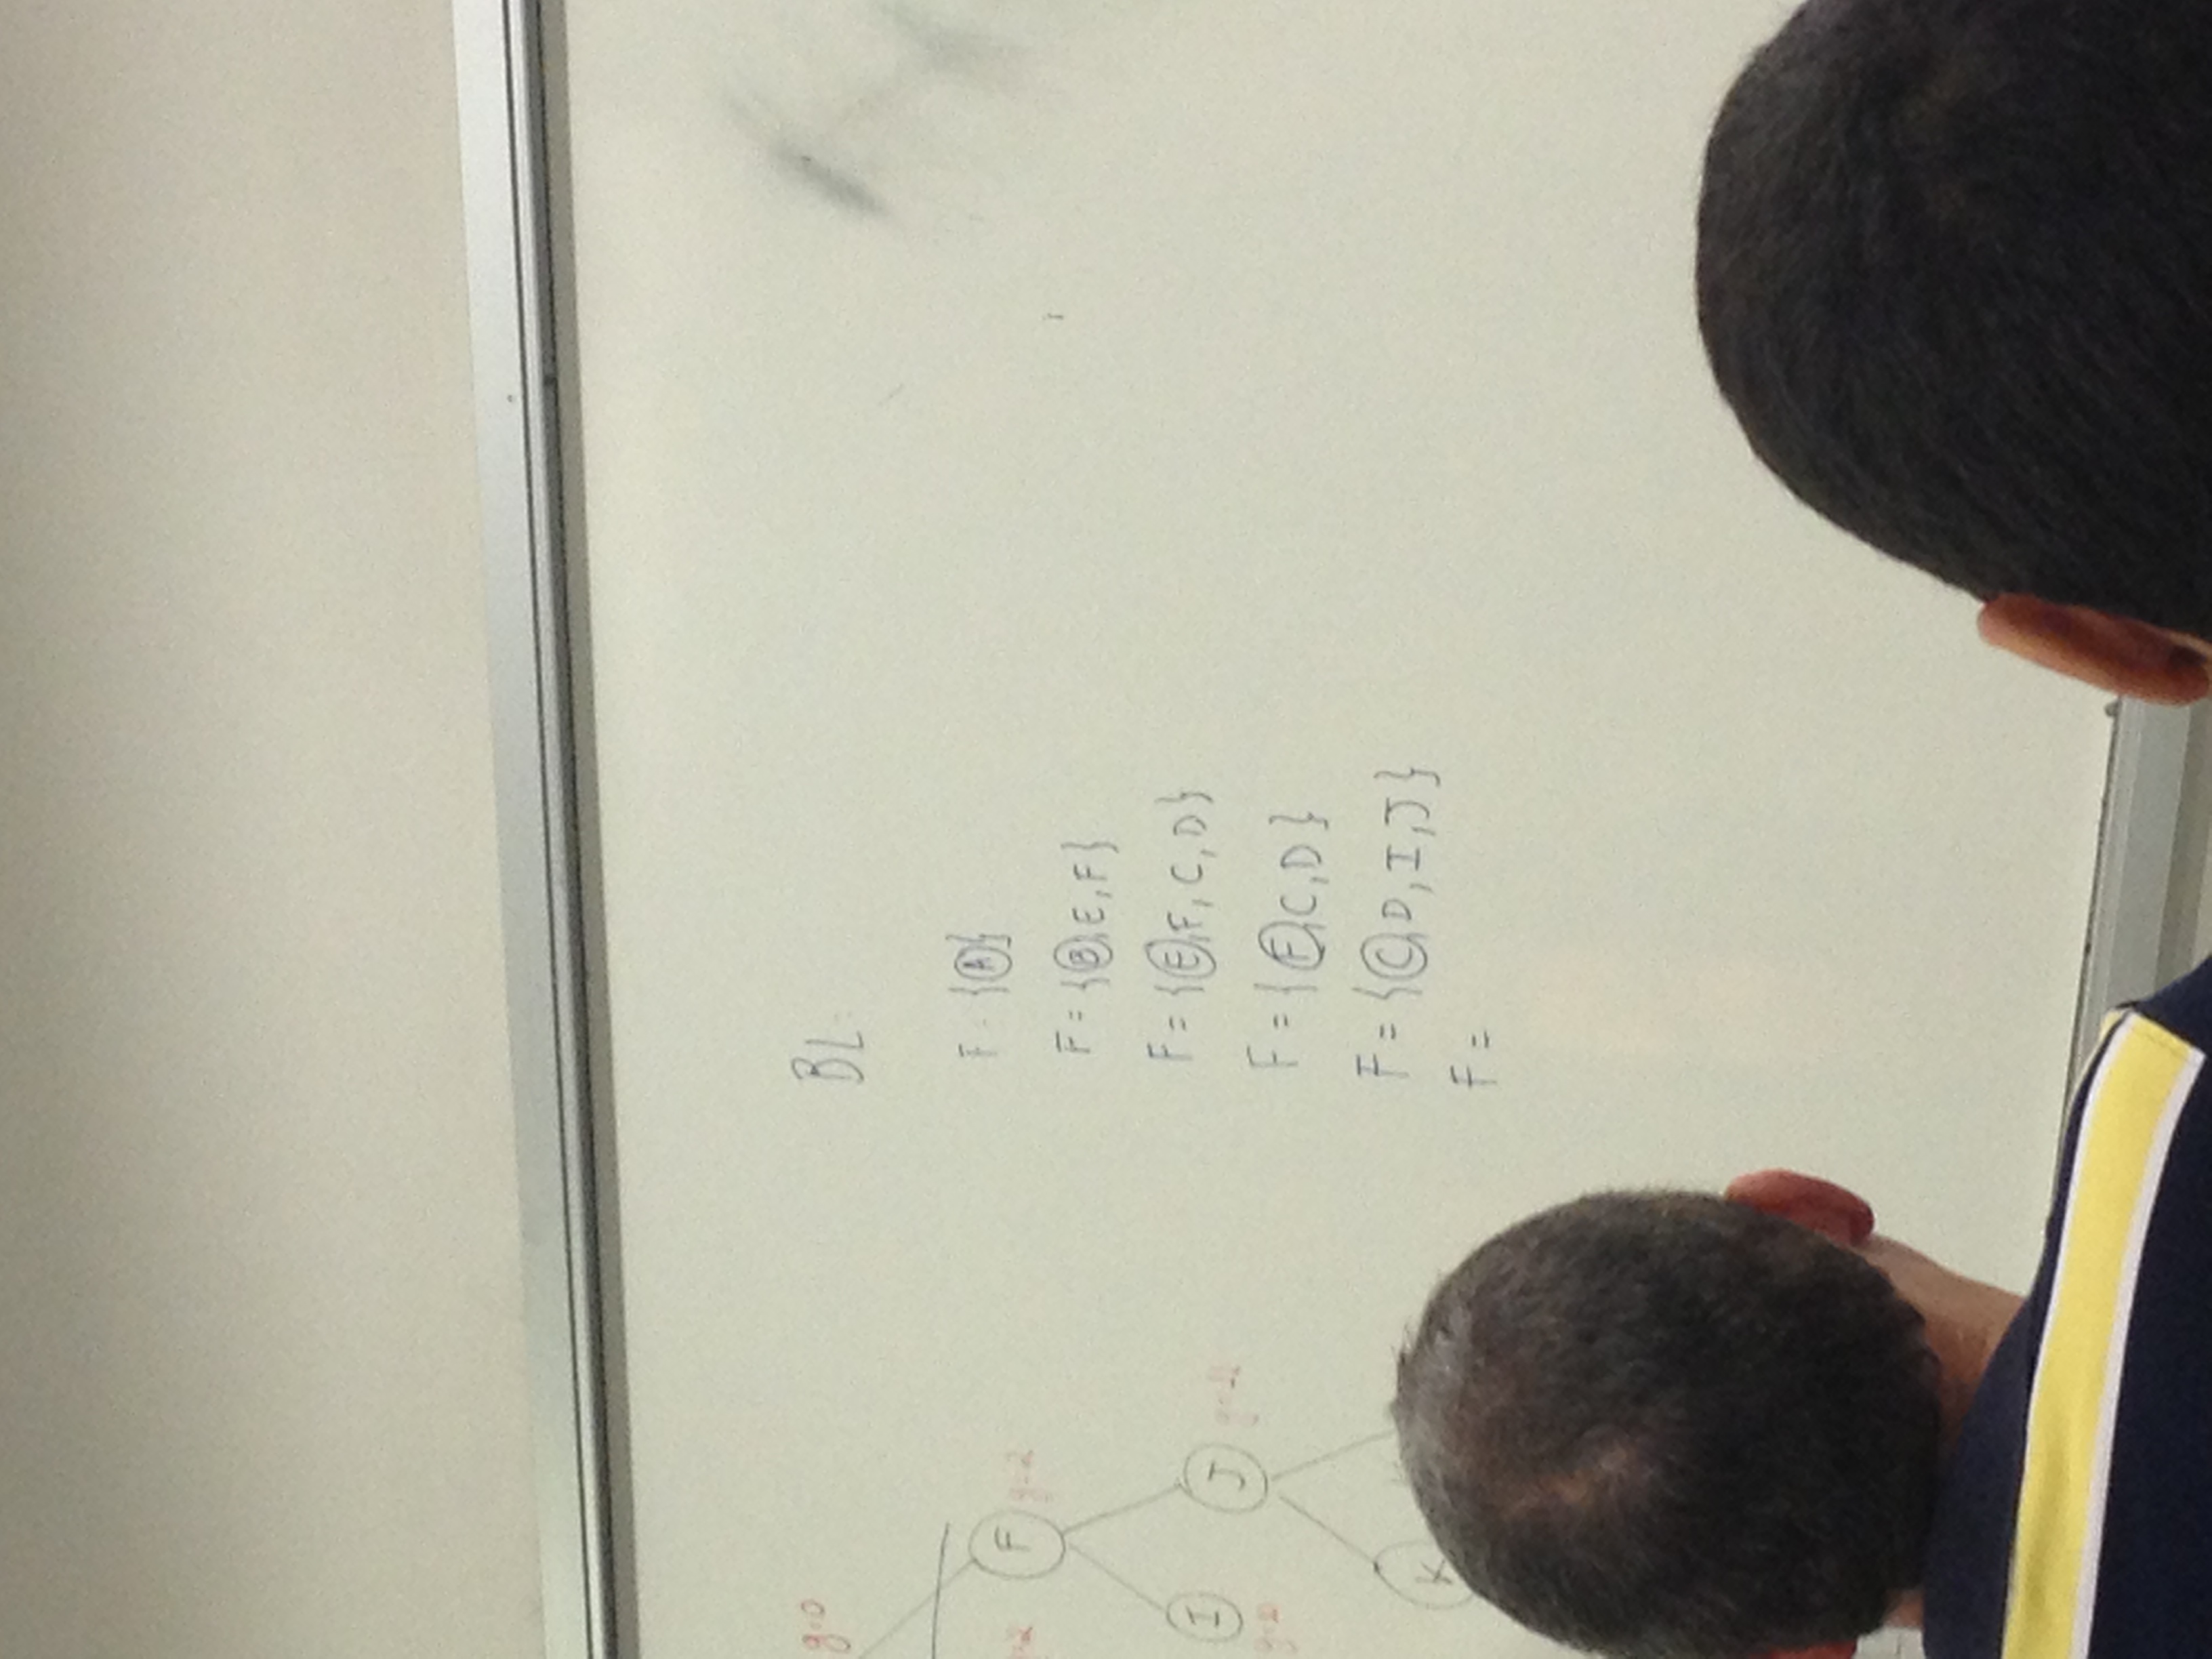 g=0
F
g=2
I
J
K
BL:
F = {A}
F = {B, E, F}
F = {E, F, C, D}
F = {F, C, D}
F = {C, D, I, J}
F =